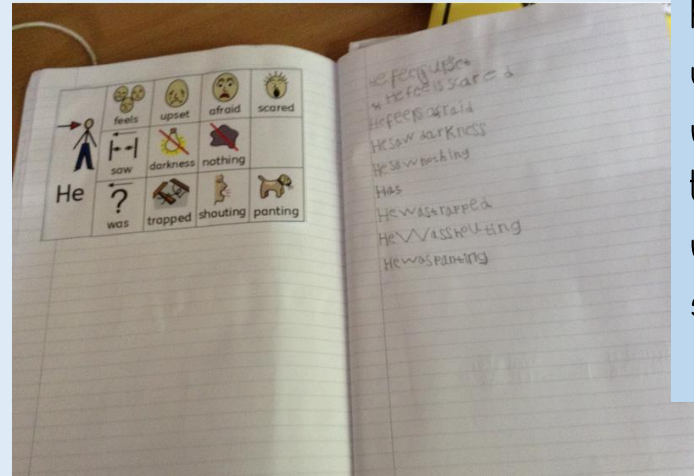 feels upset afraid scared
saw darkness nothing
He
was trapped shouting panting
He feels upset
He feels scared
He feels afraid
He saw darkness
He saw nothing
Has
He was trapped
He Was shouting
He was panting